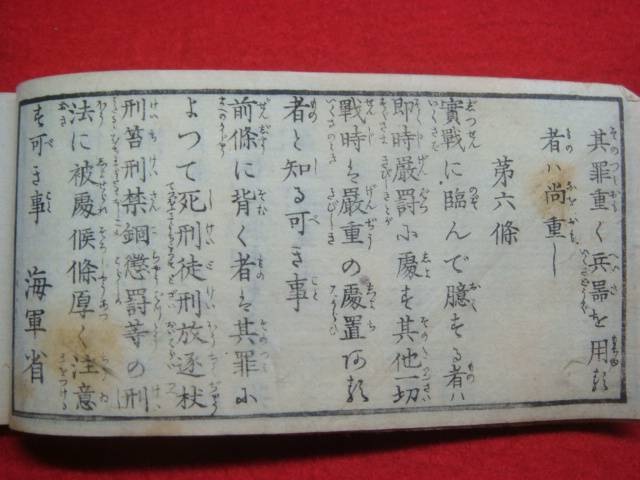 其罪重く兵器を用る
者ハ尚重し
第六條
實戰に臨んで臆する者ハ
即時嚴罰に處す其他一切
戰時は嚴重の處置ある
者と知る可き事
前條に背く者は其罪に
よつて死刑徒刑放逐杖
刑笞刑禁錮懲罰等の刑
法に被處候條厚く注意
す可き事　海軍省